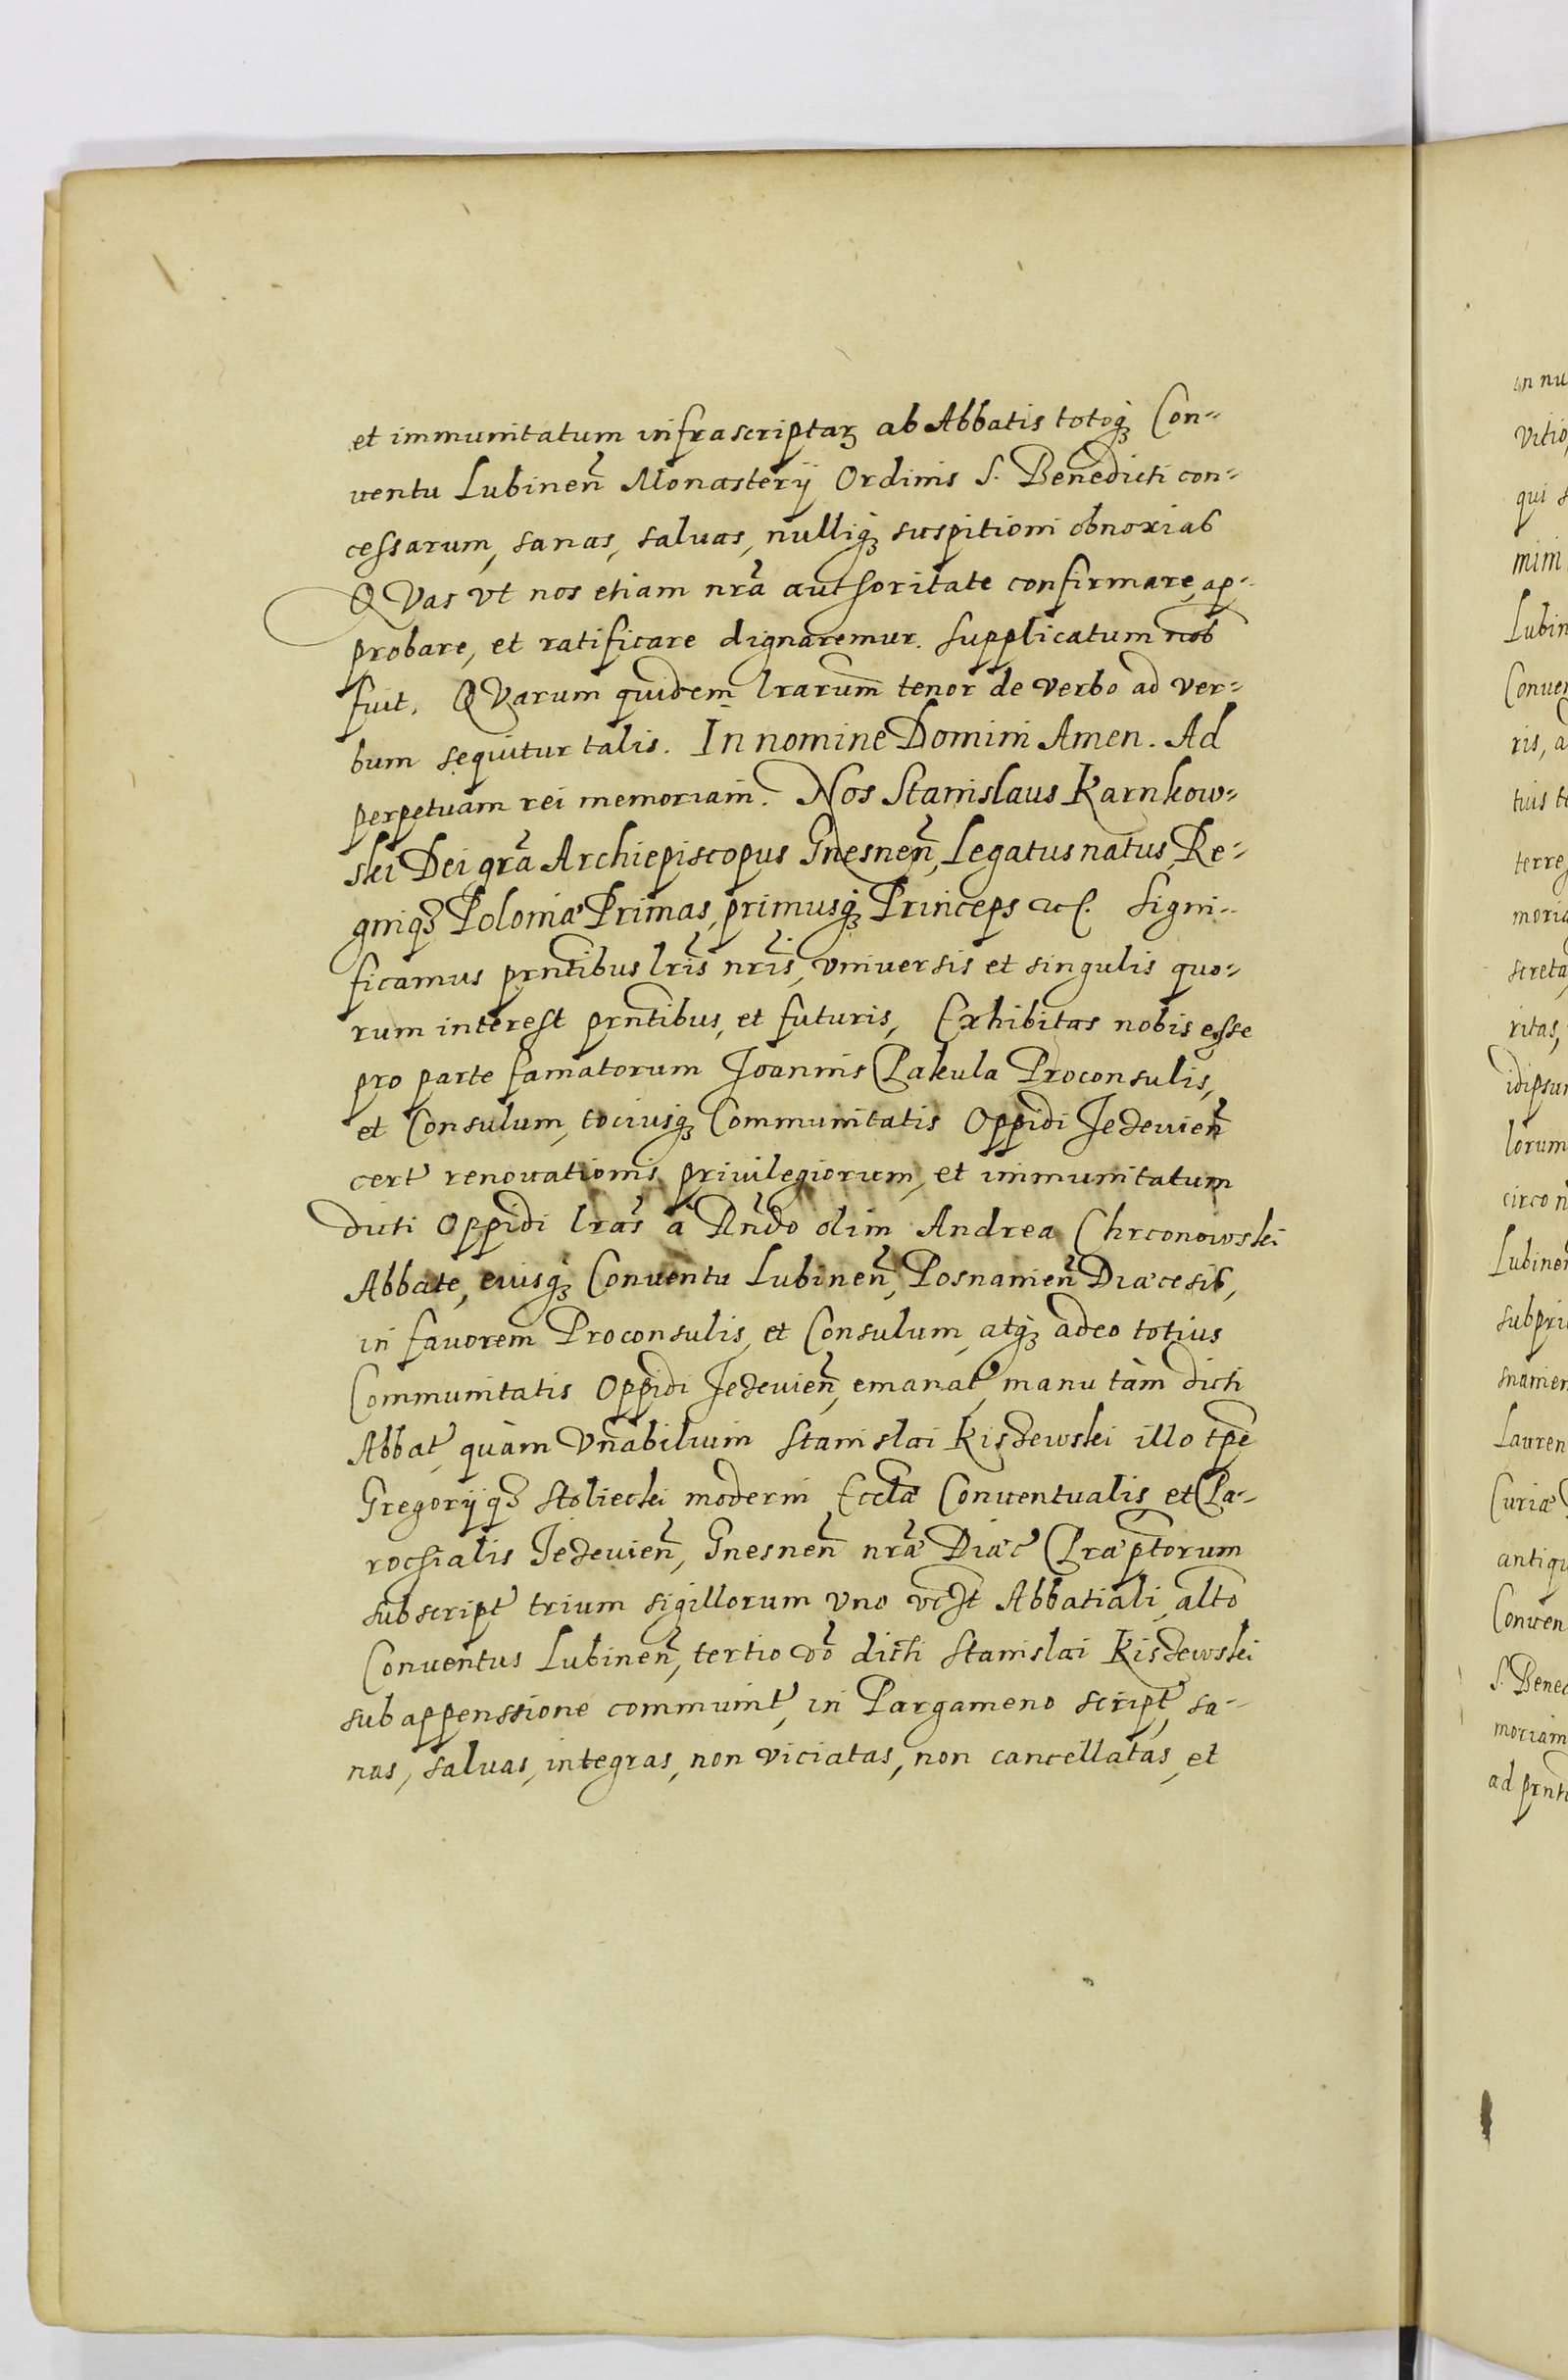 et immunitatum infrascriptaꝝ ab Abbatis totoqꝫ Con-
uentu Lubineñ Monasterij Ordinis S. Benedicti con-
cessarum, sanas, saluas, nulliqꝫ suspitioni obnoxias
QVas vt nos etiam nr̃a authoritate confirmare, ap-
probare, et ratificare dignaremur. supplicatum nob
fuit. QVarum quidem lrarum̃ tenor de verbo ad ver-
bum sequitur talis. In nomine Domini Amen. Ad
perpetuam rei memoriam. Nos Stanislaus Karnkow-
ski Dei gr̃a Archiepiscopus Gnesneñ, Legatus natus, Re-
gniqꝫ Poloniæ Primas, primusqꝫ Princeps etc. Signi-
ficamus prñtibus lr̃is nr̃is, vniuersis et singulis quo-
rum interest prñtibus, et futuris, Exhibitas nobis esse
pro parte famatorum Joannis Pakula Proconsulis,
et Consulum, tociusqꝫ Communitatis Oppidi Jezeuieñ
cert renouationis priuilegiorum, et immunitatum
dicti Oppidi lrãs à Rñdo olim Andrea Chrconowski
Abbate, eiusqꝫ Conuentu Lubineñ, Posnanieñ Diæcesis,
in fauorem Proconsulis, et Consulum, atqꝫ adeo totius
Communitatis Oppidi Jezeuieñ, emanat, manu tàm dicti
Abbat, quàm Vñabilium Stanislai Kiszewski illo tpẽ
Gregorijqꝫ Stoliecki moderni Eccl̃æ Conuentualis et Pa-
rochialis Jezeuieñ, Gnesneñ nr̃æ Diæc Præptorum
subscript trium sigillorum vno vcꝫt Abbatiali, alt̃o
Conuentus Lubineñ, tertio vo͂ dicti Stanislai Kiszewski
sub appenssione communit, in Pargameno script, sa-
nas, saluas, integras, non viciatas, non cancellatas, et
vitio
qui
mim
Lubin
Conuen
ris, a
terre
screta
ritas,
idipsum
lorum
Lubineñ
subpri
snanien
Lauren
Curiæ
antiqu
Conuen
S. Bened
moriam
ad prñti